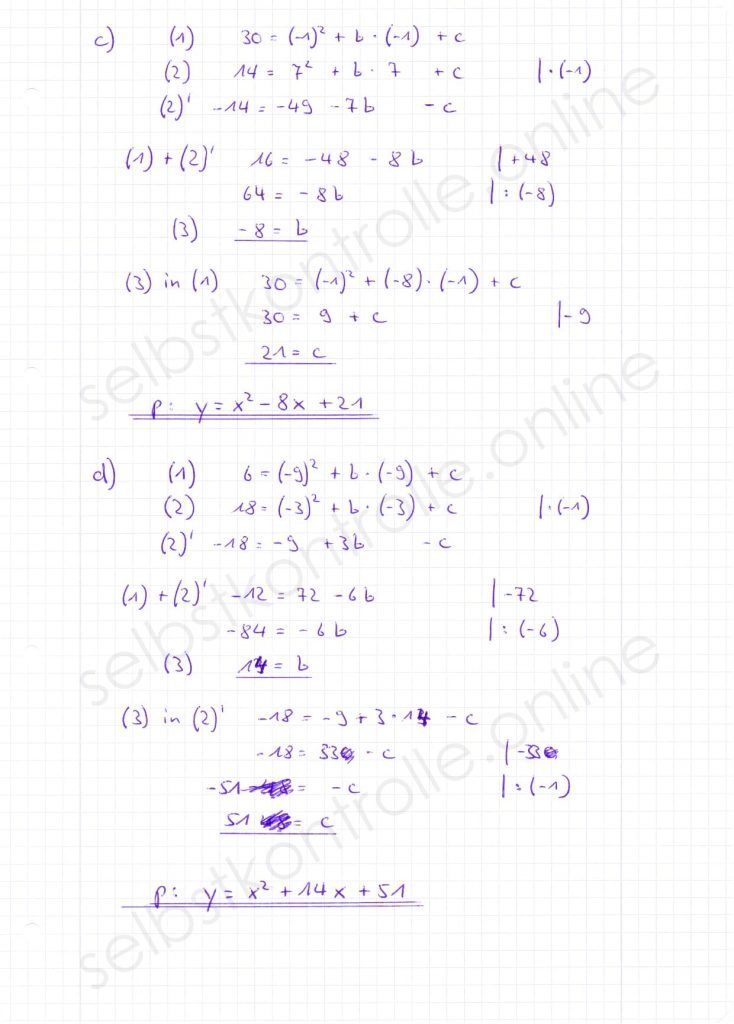 c) (1) 30 = (-1)² + b · (-1) + c
(2) 14 = 7² + b · 7 + c | · (-1)
(2)' -14 = -49 - 7b - c
(1) + (2)' 16 = -48 - 8b | +48
64 = -8b | : (-8)
(3) -8 = b
(3) in (1) 30 = (-1)² + (-8) · (-1) + c
30 = 9 + c | -9
21 = c
p: y = x² - 8x + 21
d) (1) 6 = (-9)² + b · (-9) + c
(2) 18 = (-3)² + b · (-3) + c | · (-1)
(2)' -18 = -9 + 3b - c
(1) + (2)' -12 = 72 - 6b | -72
-84 = -6b | : (-6)
(3) 14 = b
(3) in (2)' -18 = -9 + 3 · 14 - c
-18 = 33 - c | -33
-51 = -c | : (-1)
51 = c
p: y = x² + 14x + 51
selbstkontrolle.online
selbstkontrolle.online
selbstkontrolle.online